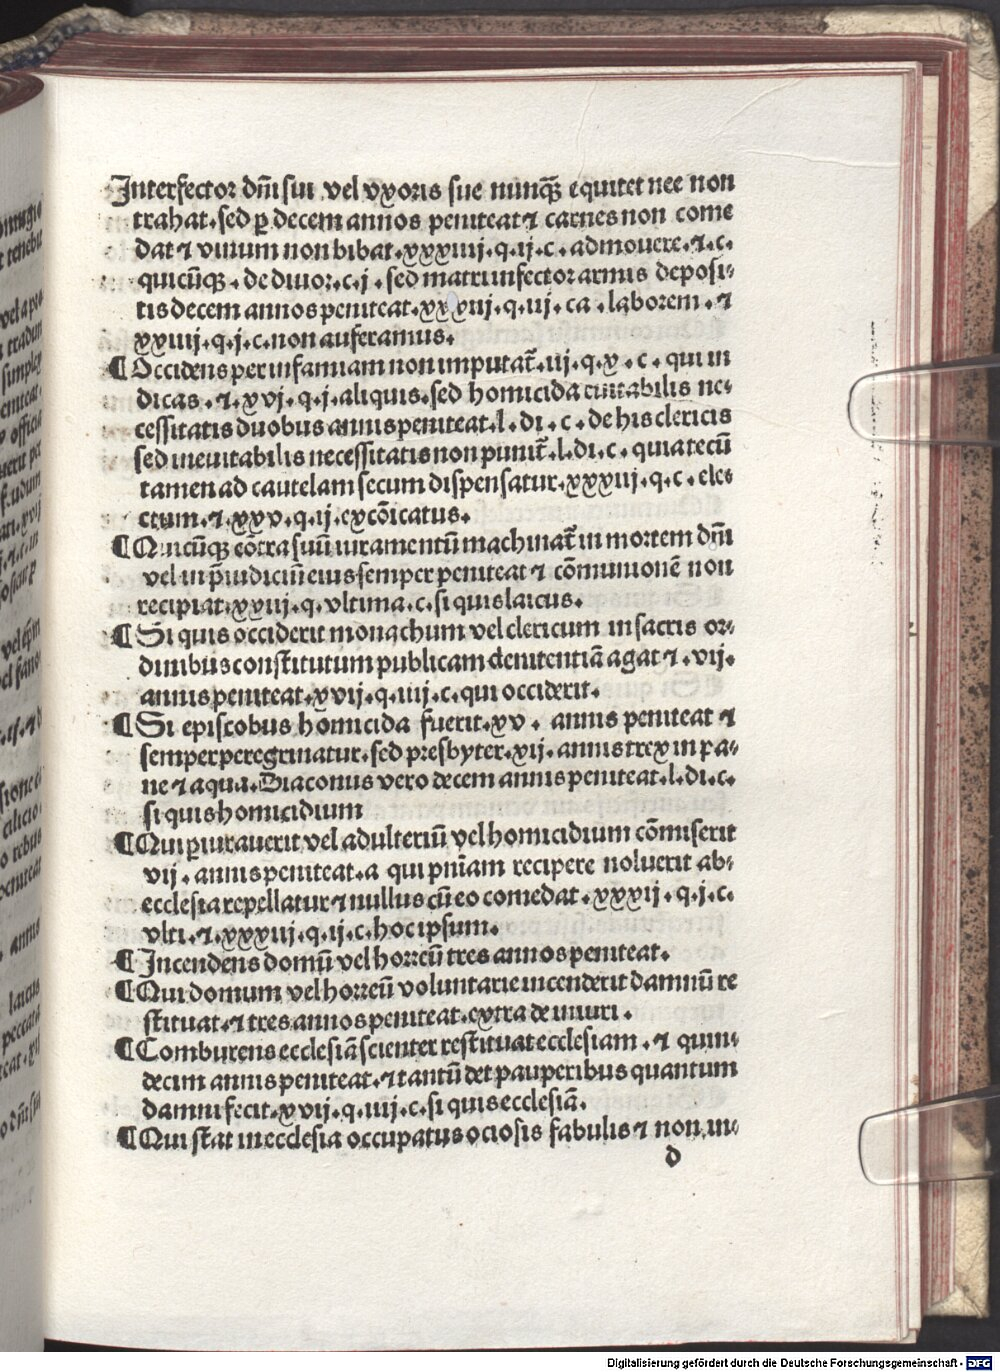 Interfector dñi sui vel vxoris sue nunq̃ȝ equitet nec non
trahat. sed ꝑ decem annos peniteat ⁊ carnes non come
dat ⁊ vinum non bibat. xxxiij. q. ij. c. admouere. ⁊. c.
quicũqȝ. de diuor. c. j. sed matri infector armis deposi⸗
tis decem annos peniteat. xxxiij. q. ij. ca. laborem. ⁊
xxiiij. q. j. c. non auferamus.
¶ Occidens per infamiam non imputat̃. iij. q. x. c. qui in
dicas. ⁊. xvj. q. j. aliquis. sed homicida euitabilis ne⸗
cessitatis duobus annis peniteat. l. di. c. de his clericis
sed ineuitabilis necessitatis non punit̃. l. di. c. quia tecũ
tamen ad cautelam secum dispensatur. xxxiij. q. c. elec⸗
ctum. ⁊. xxv. q. ij. excõicatus.
¶ Quicũqȝ cõtra suũ iuramentũ machinat̃ in mortem dñi
vel in p̃iudiciũ eius semper peniteat ⁊ cõmunionẽ non
recipiat. xxiij. q. vltima. c. si quis laicus.
¶ Si quis occiderit monachum vel clericum in sacris or⸗
dinibus constitutum publicam denitentiã agat ⁊. vij.
annis peniteat. xvij. q. iiij. c. qui occiderit.
¶ Si episcobus homicida fuerit. xv. annis peniteat ⁊
semper peregrinatur. sed presbyter. xij. annis trex in pa⸗
ne ⁊ aqua. Diaconus vero decem annis peniteat. l. di. c.
si quis homicidium
¶ Qui ꝑiurauerit vel adulteriũ vel homicidium cõmiserit
vij. annis peniteat. a qui pñiam recipere noluerit ab⸗
ecclesia repellatur ⁊ nullus cũ eo comedat. xxxij. q. j. c.
vlti. ⁊. xxxiij. q. ij. c. hoc ipsum.
¶ Incendens domũ vel horreũ tres annos peniteat.
¶ Qui domum vel horreũ voluntarie incenderit damnũ re
stituat. ⁊ tres annos peniteat. extra de iniuri.
¶ Comburens ecclesiã scienter restituat ecclesiam. ⁊ quin⸗
decim annis peniteat. ⁊ tantũ det pauperibus quantum
damni fecit. xvij. q. iiij. c. si quis ecclesiã.
¶ Qui stat in ecclesia occupatus ociosis fabulis ⁊ non in⸗
d
Digitalisierung gefördert durch die Deutsche Forschungsgemeinschaft - DFG